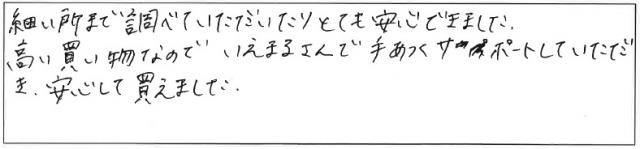 細い所まで調べていただいたりとても安心できました.
高い買い物なので いえまるさんで手あつくサポートしていただ
き.安心して買えました.